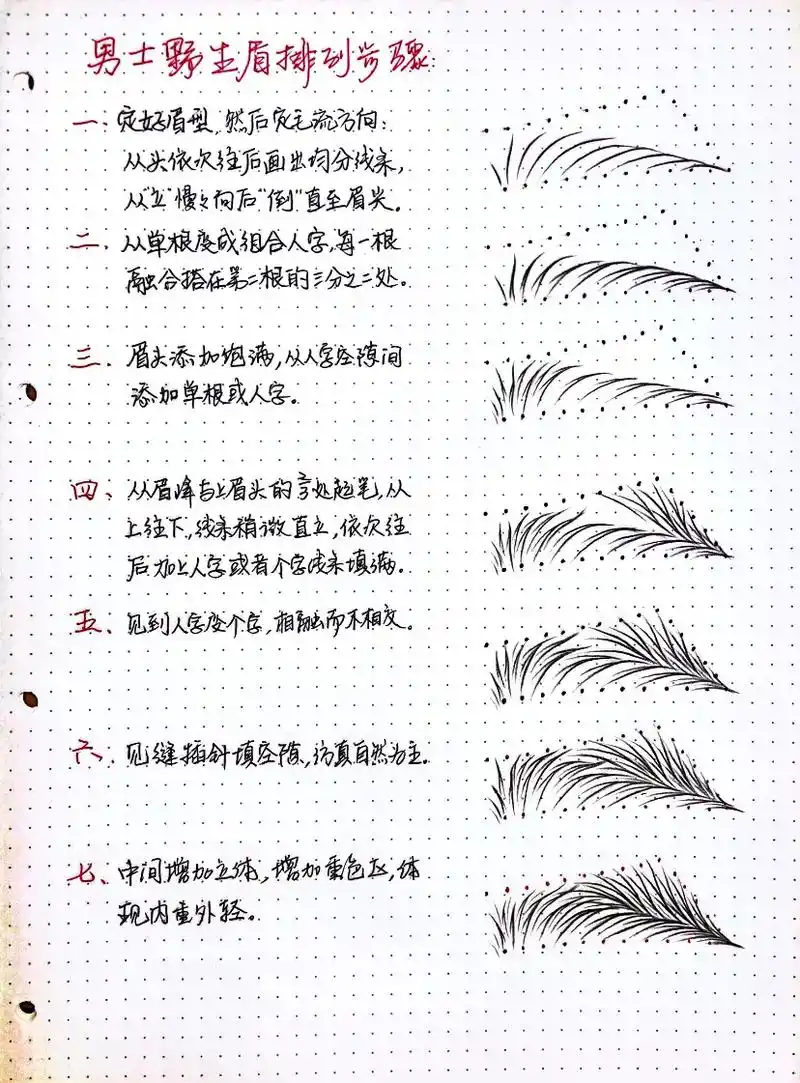 男士野生眉排列步骤:
一、定好眉型,然后定毛流方向:
从头依次往后画出均分线条,
从"立"慢々向后"倒"直至眉尖。
二、从单根度成组合人字,每一根
融合搭在第二根的三分之二处。
三、眉头添加饱满,从人字空隙间
添加单根或人字。
四、从眉峰与上眉头的 处起笔,从
上往下,线条稍微直立,依次往
后加上人字或者个字线条填满。
五、见到人字变个字,相融而不相交。
六、见缝插针填空隙,仿真自然为主。
七、中间增加立体,增加重色区,体
现内重外轻。